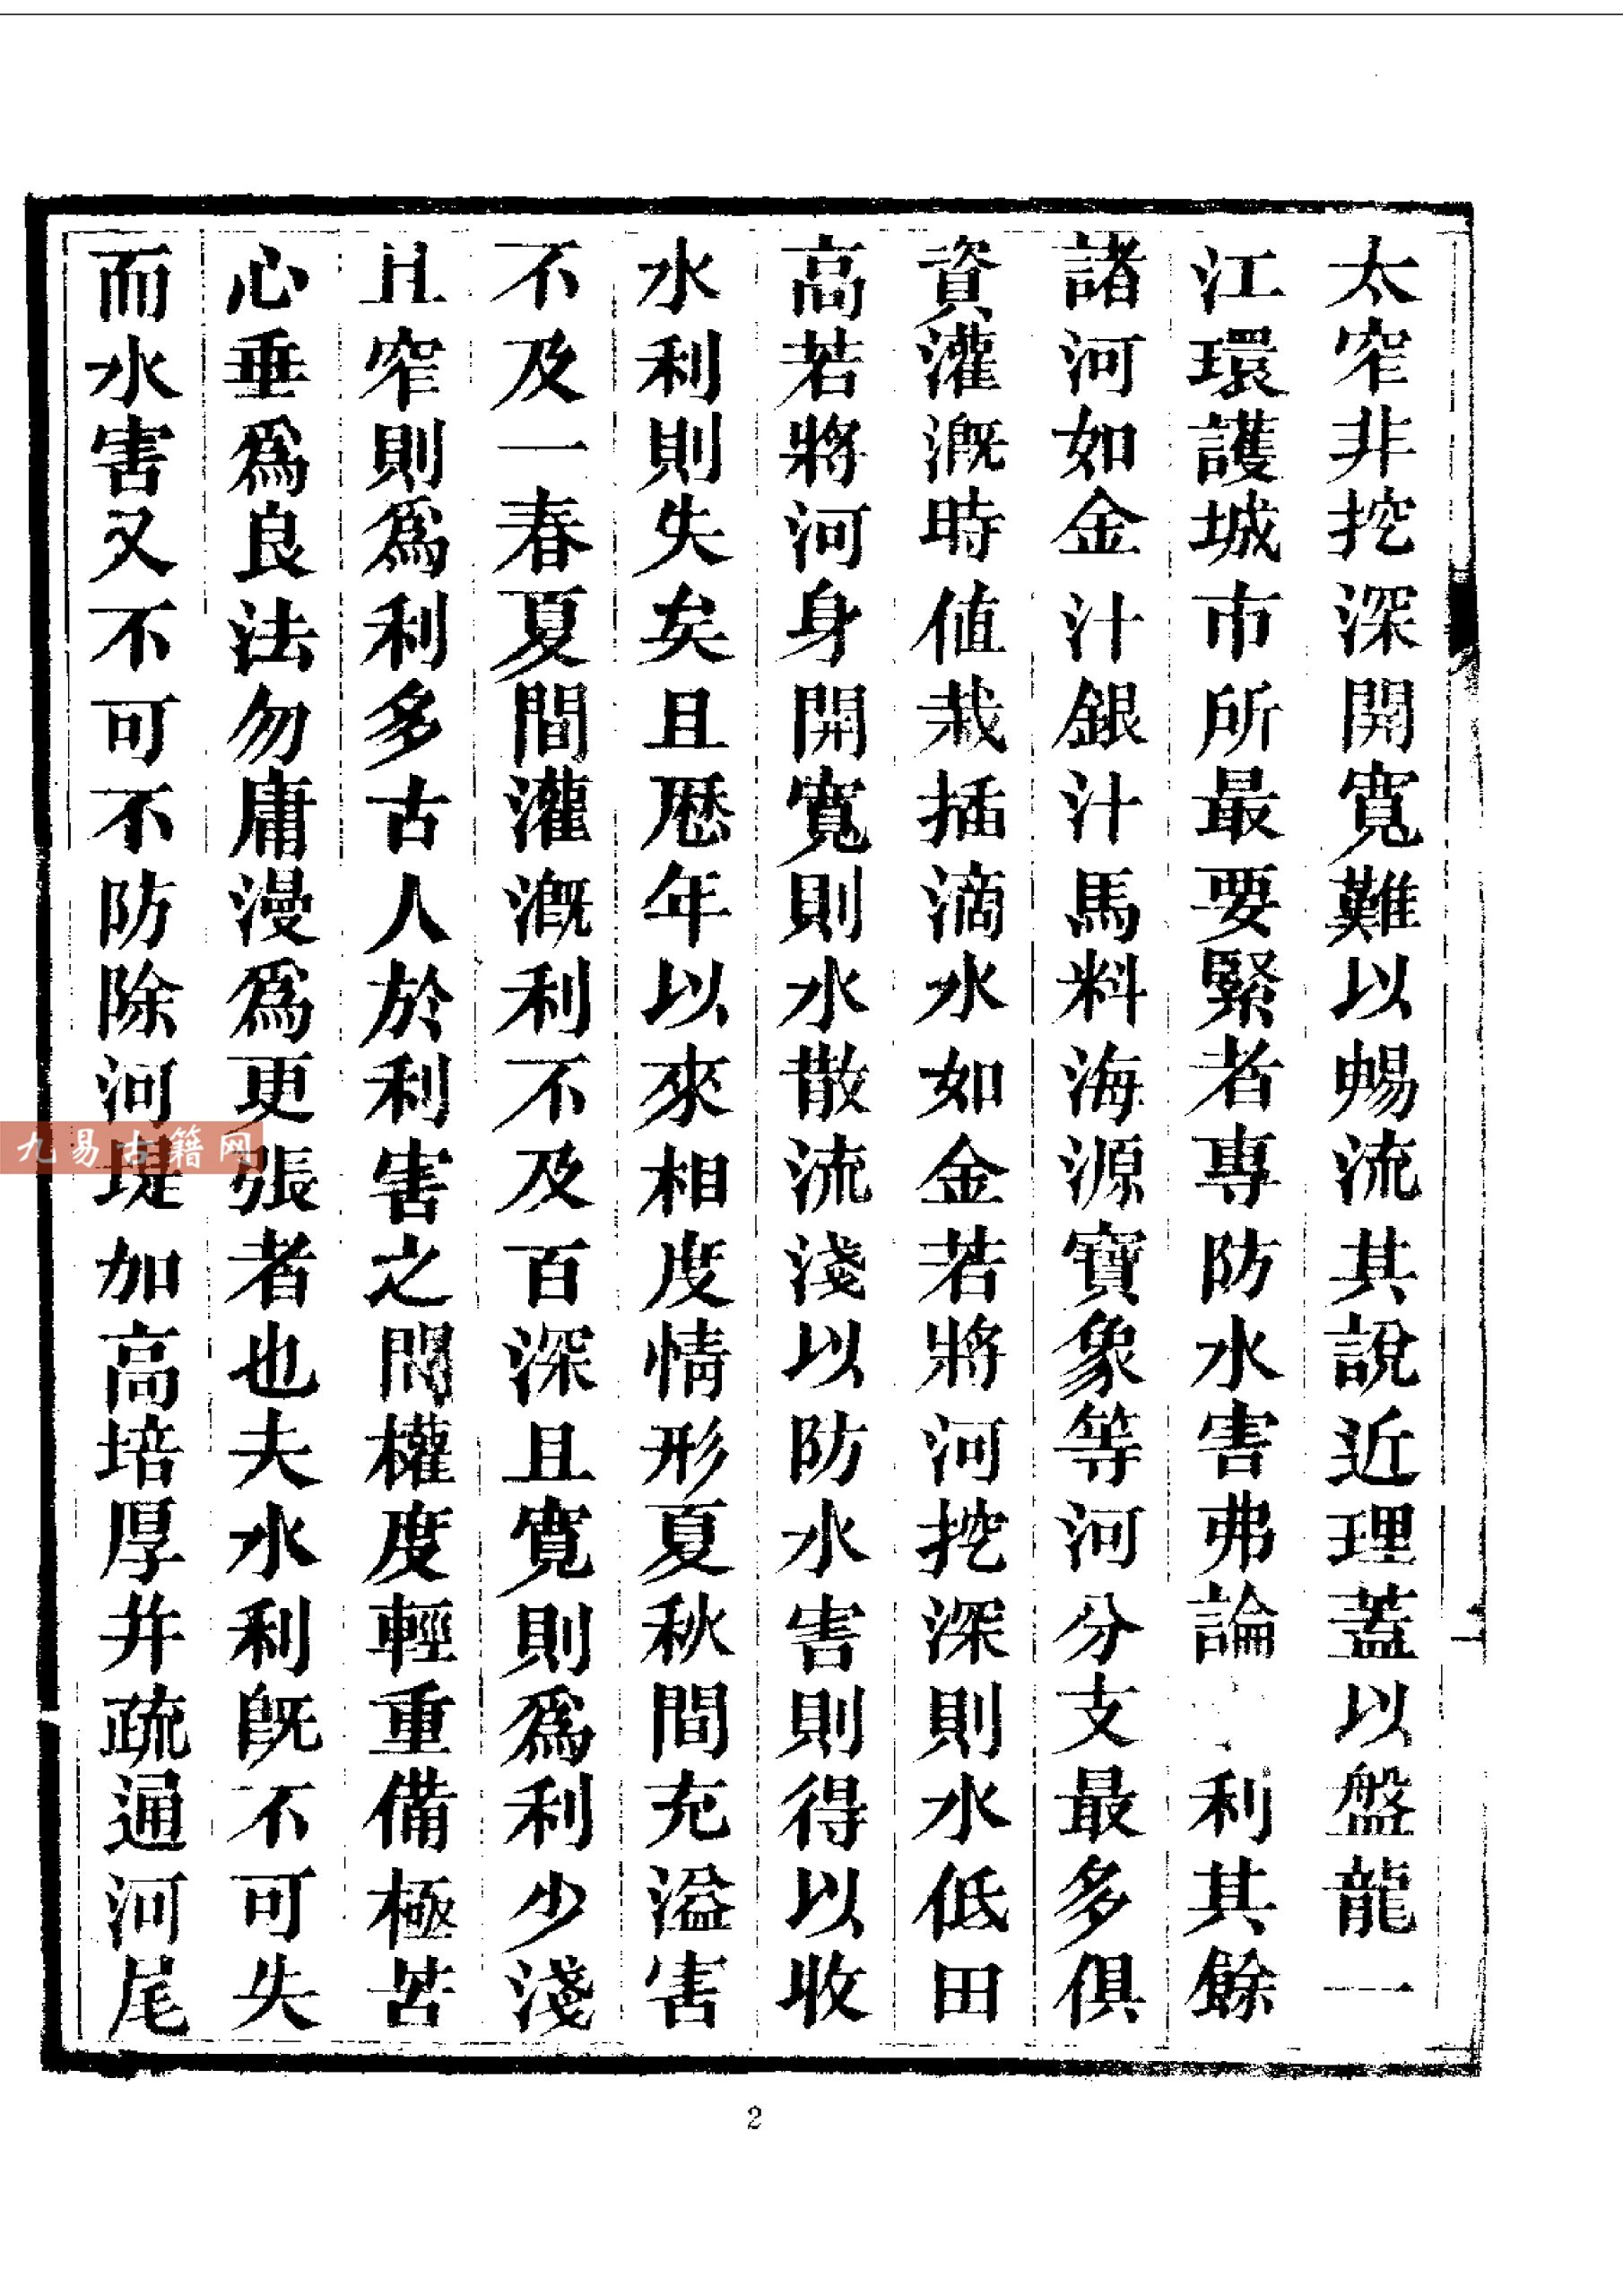 太窄非挖深開寬難以暢流其說近理蓋以盤龍一
江環護城市所最要緊者專防水害弗論利其餘
諸河如金汁銀汁馬料海源寶象等河分支最多俱
資灌溉時值栽插滴水如金若將河挖深則水低田
高若將河身開寬則水散流淺以防水害則得以收
水利則失矣且歷年以來相度情形夏秋間充溢害
不及一春夏間灌溉利不及百深且寬則爲利少淺
且窄則爲利多古人於利害之間權度輕重備極苦
心垂爲良法勿庸漫爲更張者也夫水利旣不可失
而水害又不可不防除河堤加高培厚幷疏通河尾
九易古籍网
2